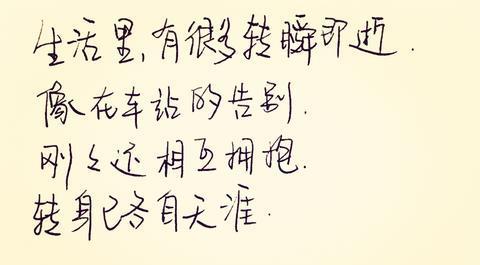 生活里,有很多转瞬即逝.
像在车站的告别.
刚々还相互拥抱.
转身已各自天涯.